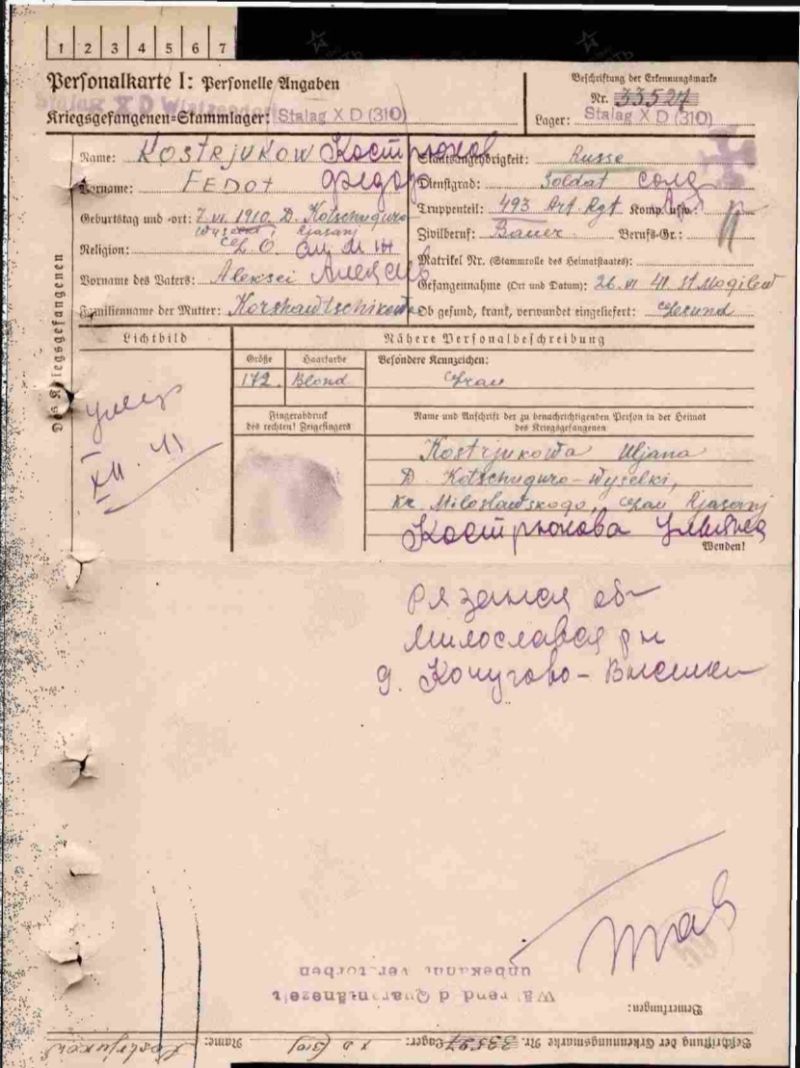 1 2 3 4 5 6 7
Personalkarte I: Personelle Angaben
Kriegsgefangenen-Stammlager: Stalag X D (310)
Beschriftung der Erkennungsmarke
Nr. 33527
Lager: Stalag X D (310)
Des Kriegsgefangenen
Name: KOSTRJUKOW Кострюков
Vorname: FEDOT Федор
Geburtstag und -ort: 7. VI. 1910. D. Kotschuguro
Religion:
Vorname des Vaters: Aleksei Алексей
Familienname der Mutter:
Staatsangehörigkeit: Russe
Dienstgrad: Soldat солд
Truppenteil: 493 Art Rgt Komp. usw.:
Zivilberuf: Bauer Berufs-Gr.:
Matrikel Nr. (Stammrolle des Heimatstaates):
Gefangennahme (Ort und Datum): 26. VII 41. St Mogilew
Ob gesund, krank, verwundet eingeliefert: Gesund
Lichtbild
умер
XII. 41
Nähere Personalbeschreibung
Größe Haarfarbe Besondere Kennzeichen:
172. Blond
Fingerabdruck
des rechten! Zeigefingers
Name und Anschrift der zu benachrichtigenden Person in der Heimat
des Kriegsgefangenen
Kostrjukowa Uljana
D. Kotschuguro-Wyselki,
Kr. Miloslawskogo, Rjasanj
Кострюкова Ульяна
Wenden!
Рязаная об
Милослався рн
д. Кочугово-Выселки
Bemerkungen:
Während d Quarantänezeit
unbekannt verstorben
Beschriftung der Erkennungsmarke Nr. 33527 Lager: X D (310) Name: Kostrjukow